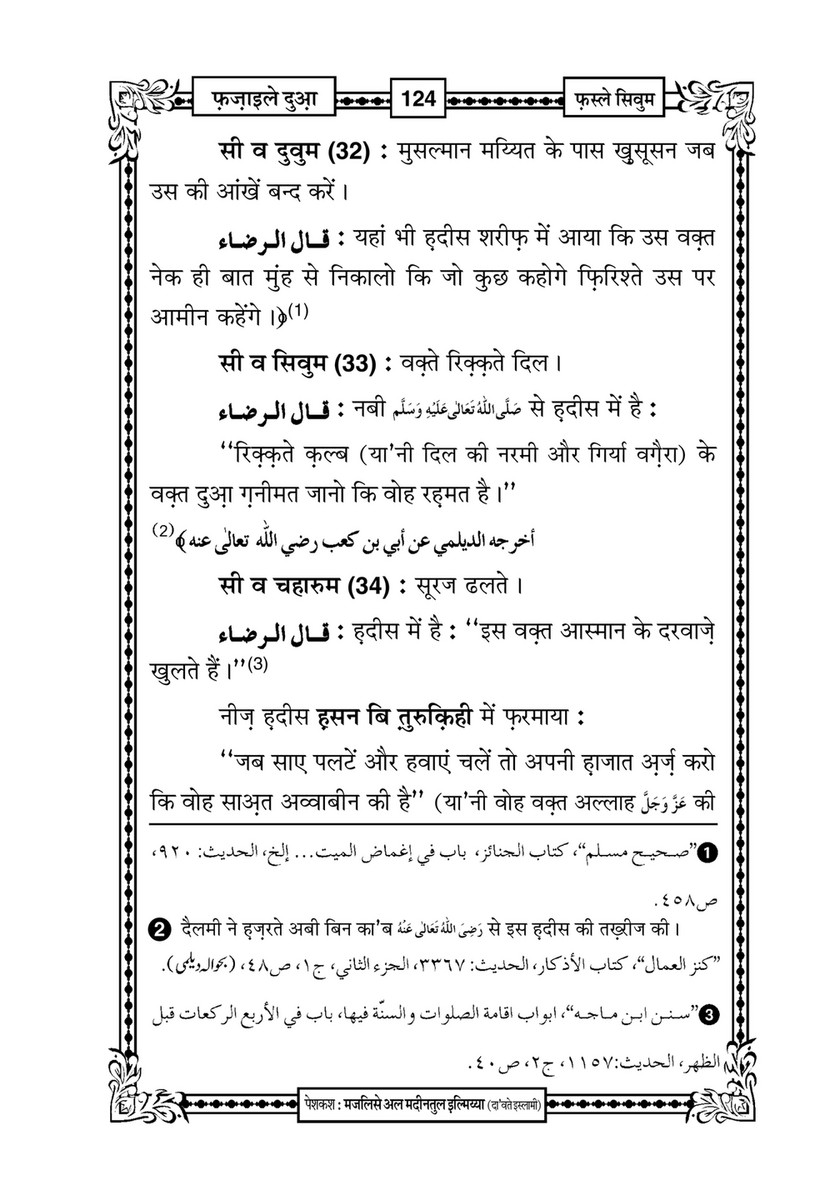 फ़ज़ाइले दुआ़
124
फ़स्ले सिवुम
सी व दुवुम (32) : मुसल्मान मय्यित के पास ख़ुसूसन जब
उस की आंखें बन्द करें ।
قال الرضاء : यहां भी ह़दीस शरीफ़ में आया कि उस वक़्त
नेक ही बात मुंह से निकालो कि जो कुछ कहोगे फ़िरिश्ते उस पर
आमीन कहेंगे ।﴾(1)
सी व सिवुम (33) : वक़्ते रिक़्क़ते दिल ।
قال الرضاء : नबी صَلَّى اللهُ تَعَالٰى عَلَيْهِ وَسَلَّم से ह़दीस में है :
‘‘रिक़्क़ते क़ल्ब (या’नी दिल की नरमी और गिर्या वग़ैरा) के
वक़्त दुआ़ ग़नीमत जानो कि वोह रह़मत है ।’’
أخرجه الديلمي عن أبي بن كعب رضي الله تعالٰى عنه ﴾(2)
सी व चहारुम (34) : सूरज ढलते ।
قال الرضاء : ह़दीस में है : ‘‘इस वक़्त आस्मान के दरवाज़े
खुलते हैं ।’’(3)
नीज़ ह़दीस ह़सन बि त़ुरुक़िही में फ़रमाया :
‘‘जब साए पलटें और हवाएं चलें तो अपनी ह़ाजात अ़र्ज़ करो
कि वोह साअ़त अव्वाबीन की है’’ (या’नी वोह वक़्त अल्लाह عَزَّ وَجَلَّ की
❶ ”صحيح مسلم“، كتاب الجنائز، باب في إغماض الميت... إلخ، الحديث: ٩٢٠،
ص٤٥٨.
❷ दैलमी ने ह़ज़रते अबी बिन का’ब رَضِىَ اللهُ تَعَالٰى عَنْهُ से इस ह़दीस की तख़्रीज की ।
”كنز العمال“، كتاب الأذكار، الحديث: ٣٣٦٧، الجزء الثاني، ج١، ص٤٨، (بحواله ديلمى).
❸ ”سنن ابن ماجه“، ابواب اقامة الصلوات والسنّة فيها، باب في الأربع الركعات قبل
الظهر، الحديث:١١٥٧، ج٢، ص٤٠.
पेशकश : मजलिसे अल मदीनतुल इल्मिय्या (दा’वते इस्लामी)